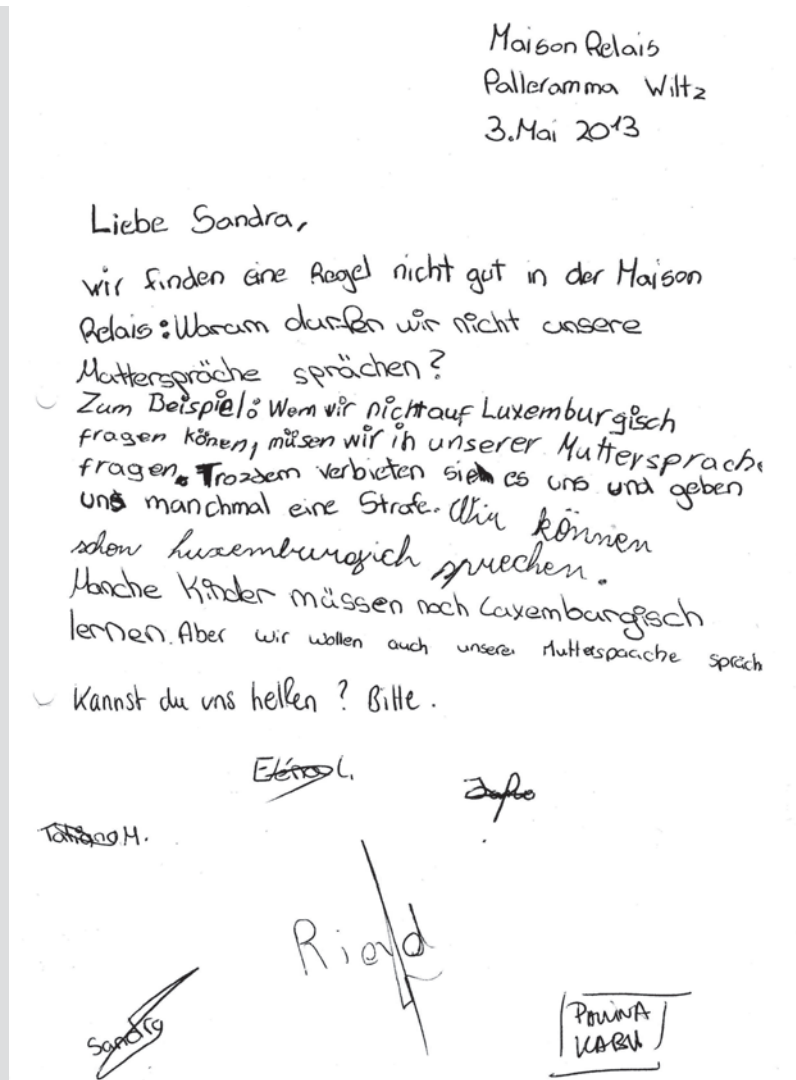 Maison Relais
Palleramma Wiltz
3. Mai 2013
Liebe Sandra,
wir finden eine Regel nicht gut in der Maison
Relais: Warum durfen wir nicht unsere
Mutterspräche sprächen?
Zum Beispiel: Wenn wir nicht auf Luxemburgisch
fragen könen, müsen wir in unserer Muttersprache
fragen. Trozdem verbieten sie es uns und geben
uns manchmal eine Strafe. Wir können
schon luxemburgich sprechen.
Manche Kinder müssen noch Luxemburgisch
lernen. Aber wir wollen auch unsere Mutterspaache spräch
Kannst du uns helfen? Bitte.
L.
M.
Sandra